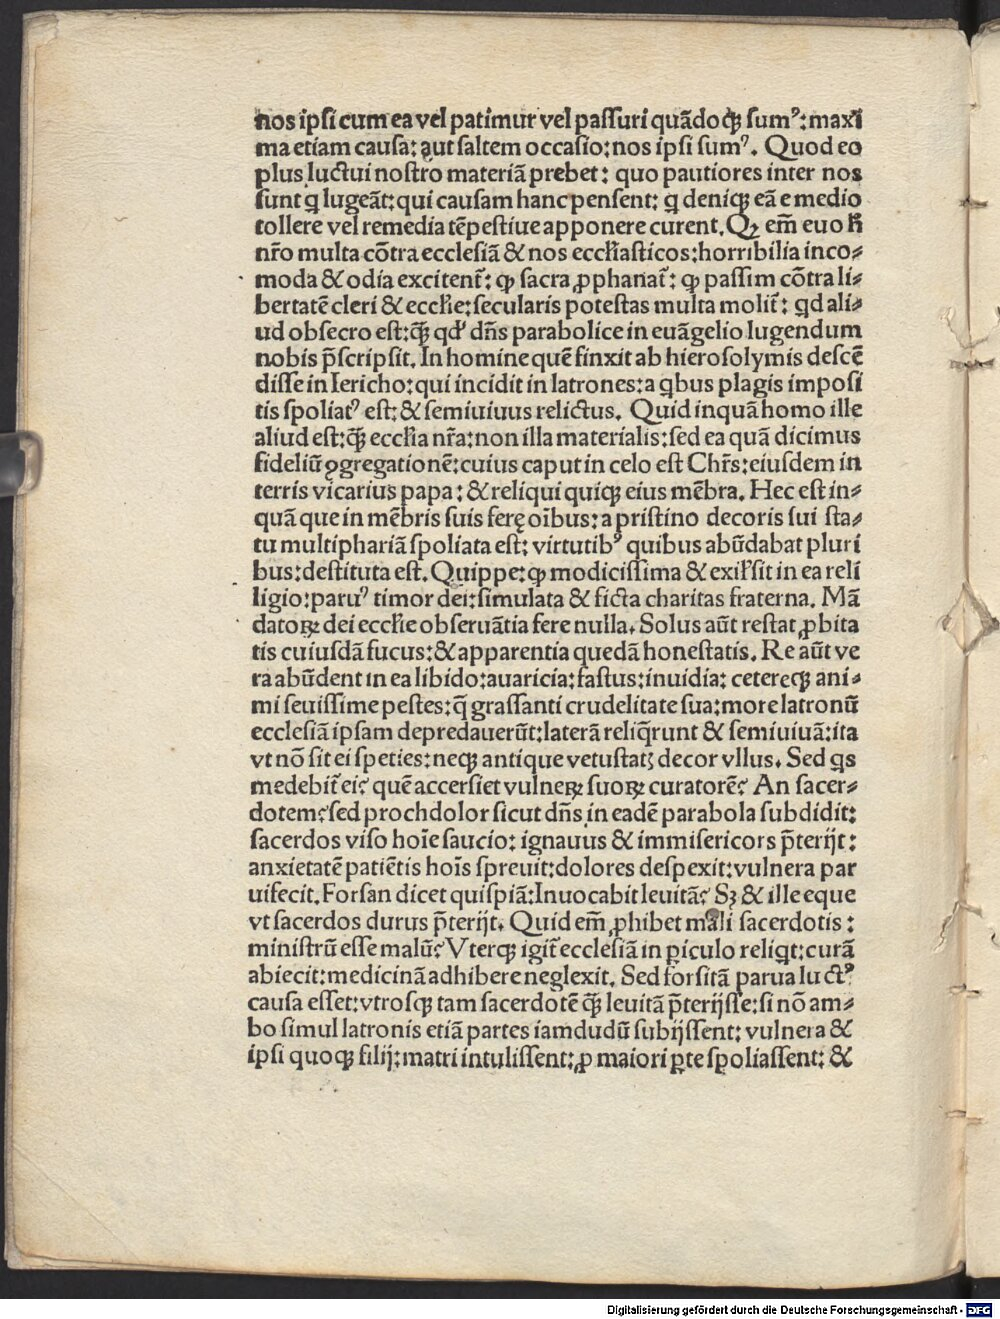 nos ipsi cum ea vel patimur vel passuri quãdoꝗ sumꝰ: maxi
ma etiam causa: aut saltem occasio: nos ipsi sumꝰ. Quod eo
plus luctui nostro materiã prebet: quo pautiores inter nos
sunt ꝗ lugeãt: qui causam hanc pensent: ꝗ deniqꝫ eã e medio
tollere vel remedia tẽpestiue apponere curent. Qꝫ em̃ euo h̃
nr̃o multa cõtra ecclesiã & nos eccl̃iasticos: horribilia inco⸗
moda & odia excitent̃: ꝙ sacra ꝓphanat̃: ꝙ passim cõtra li⸗
bertatẽ cleri & eccl̃ie: secularis potestas multa molit̃: ꝗd ali⸗
ud obsecro est: ꝗ̃ꝫ qd' dñs parabolice in euãgelio lugendum
nobis p̃scripsit. In homine quẽ finxit ab hierosolymis descẽ
disse in Iericho: qui incidit in latrones: a ꝗbus plagis imposi
tis spoliatꝰ est: & semiuiuus relictus. Quid inquã homo ille
aliud est: ꝗ̃ꝫ eccl̃ia nr̃a: non illa materialis: sed ea quã dicimus
fideliũ ꝯgregationẽ: cuius caput in celo est Chr̃s: eiusdem in
terris vicarius papa: & reliqui quiqꝫ eius mẽbra. Hec est in⸗
quã que in mẽbris suis ferę oĩbus: a pristino decoris sui sta⸗
tu multiphariã spoliata est: virtutibꝰ quibus abũdabat pluri
bus: destituta est. Quippe: ꝙ modicissima & exil'sit in ea reli
ligio: paruꝰ timor dei: simulata & ficta charitas fraterna. Mã
datoꝝ dei eccl̃ie obseruãtia fere nulla. Solus aũt restat ꝓbita
tis cuiusdã fucus: & apparentia quedã honestatis. Re aũt ve
ra abũdent in ea libido: auaricia: fastus: inuidia: cetereqꝫ ani⸗
mi seuissime pestes: q̃ grassanti crudelitate sua: more latronũ
ecclesiã ipsam depredauerũt: laterã reliq̃runt & semiuiuã: ita
vt nõ sit ei speties: neqꝫ antique vetustatꝫ decor vllus. Sed ꝗs
medebit̃ ei? quẽ accersiet vulneꝝ suoꝝ curatorẽ? An sacer⸗
dotem? sed prochdolor sicut dñs in eadẽ parabola subdidit:
sacerdos viso hoĩe saucio: ignauus & immisericors p̃terijt:
anxietatẽ patiẽtis hoĩs spreuit: dolores despexit: vulnera par
uifecit. Forsan dicet quispiã: Inuocabit leuitã? Sꝫ & ille eque
vt sacerdos durus p̃terijt. Quid em̃ ꝓhibet mali sacerdotis:
ministrũ esse malũ? Vterqꝫ igit̃ ecclesiã in ꝑiculo reliꝗt: curã
abiecit: medicinã adhibere neglexit. Sed forsitã parua luctꝰ
causa esset: vtrosqꝫ tam sacerdotẽ ꝗ̃ꝫ leuitã p̃terijsse: si nõ am⸗
bo simul latronis etiã partes iamdudũ subijssent: vulnera &
ipsi quoqꝫ filij: matri intulissent: ꝓ maiori ꝑte spoliassent: &
Digitalisierung gefördert durch die Deutsche Forschungsgemeinschaft - DFG